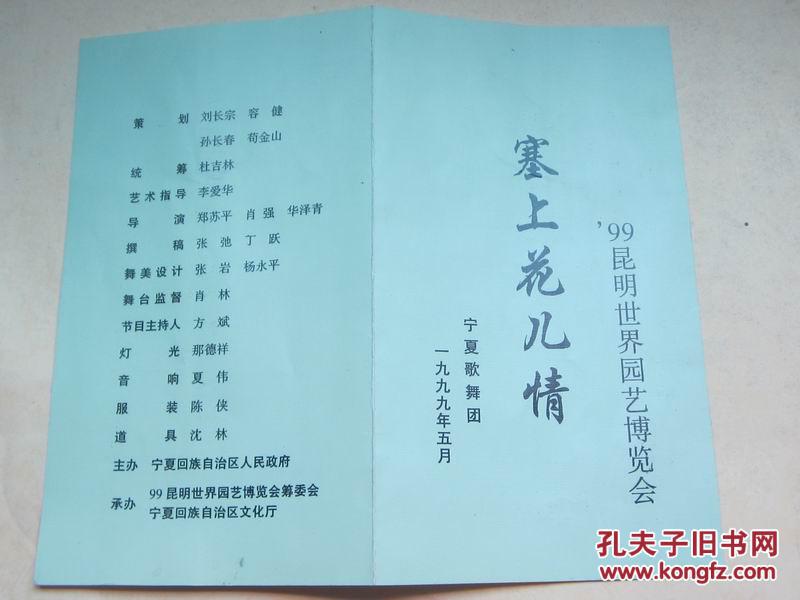 策划 刘长宗 容健
孙长春 荀金山
统筹 杜吉林
艺术指导 李爱华
导演 郑苏平 肖强 华泽青
撰稿 张弛 丁跃
舞美设计 张岩 杨永平
舞台监督 肖林
节目主持人 方斌
灯光 那德祥
音响 夏伟
服装 陈侠
道具 沈林
主办 宁夏回族自治区人民政府
承办 99昆明世界园艺博览会筹委会
宁夏回族自治区文化厅
'99昆明世界园艺博览会
塞上花儿情
宁夏歌舞团
一九九九年五月
孔夫子旧书网
www.kongfz.com